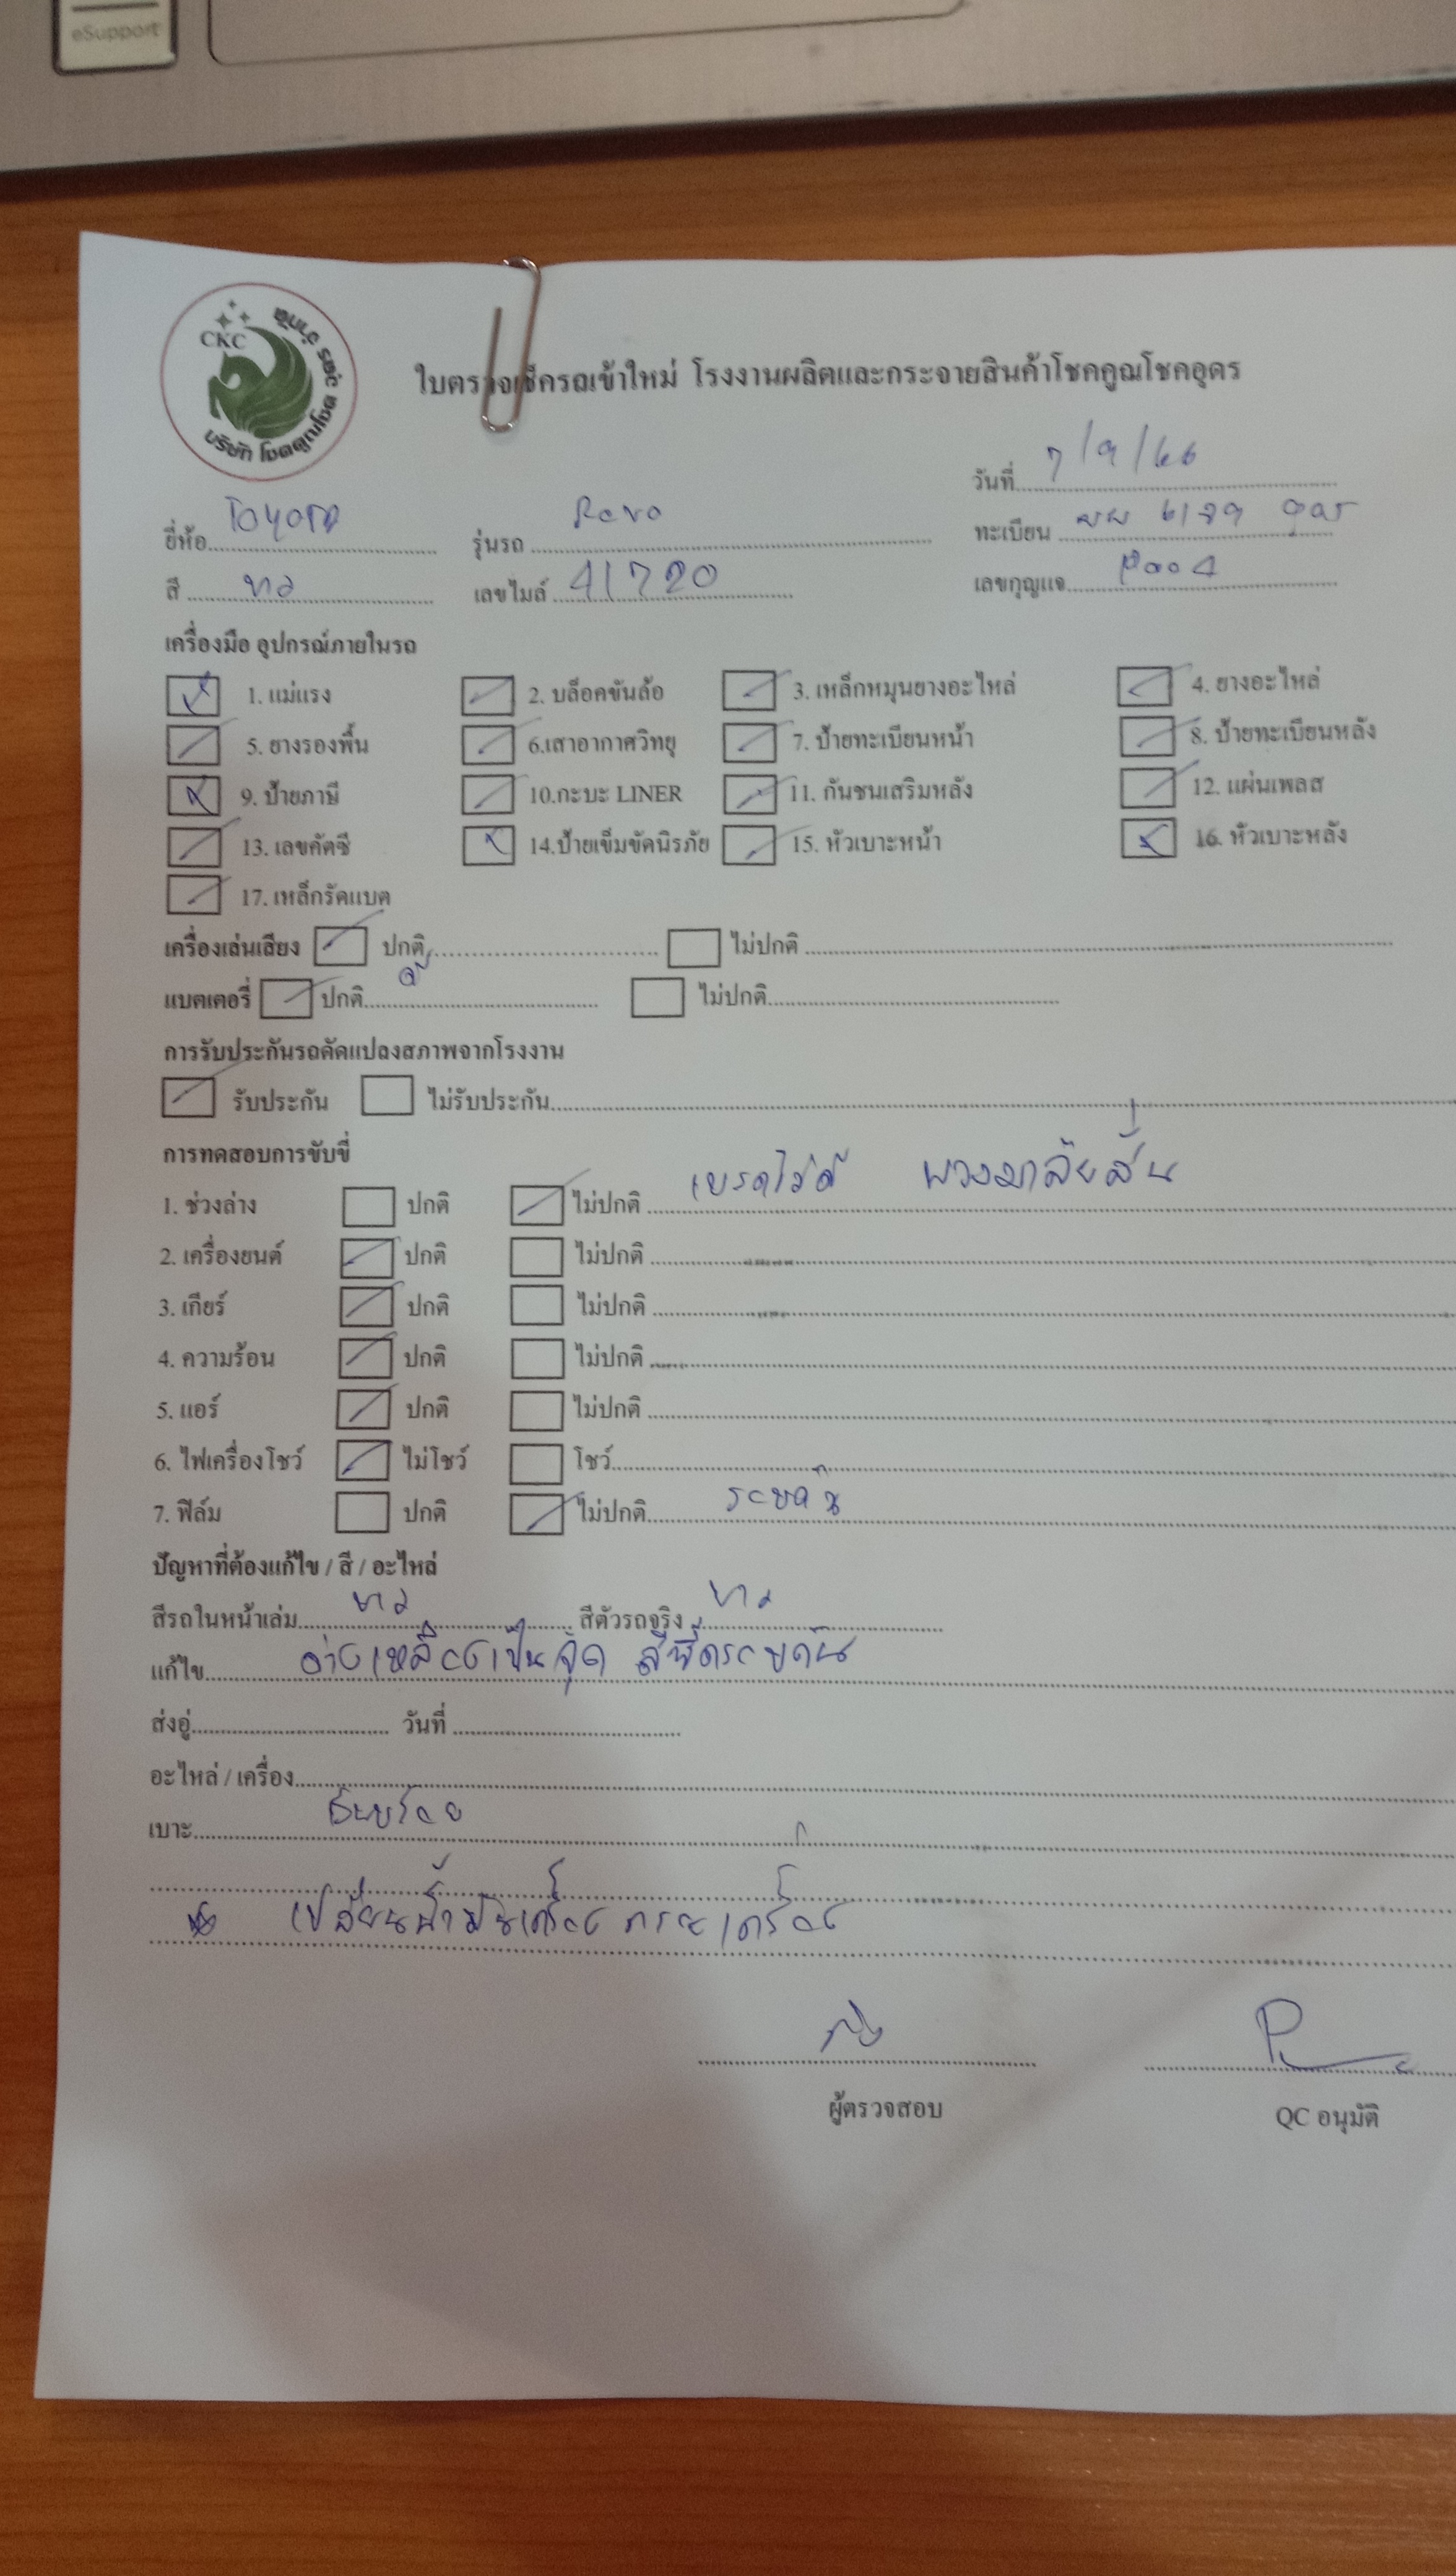 eSupport
CKC
บริษัท โชคคูณโชค อุดร จำกัด
ใบตรวจเช็ครถเข้าใหม่ โรงงานผลิตและกระจายสินค้าโชคคูณโชคอุดร
วันที่ 7/9/66
ยี่ห้อ Toyota รุ่นรถ Revo ทะเบียน
สี ขาว เลขไมล์ 41720 เลขกุญแจ
เครื่องมือ อุปกรณ์ภายในรถ
1. แม่แรง 2. บล็อคขันล้อ 3. เหล็กหมุนยางอะไหล่ 4. ยางอะไหล่
5. ยางรองพื้น 6.เสาอากาศวิทยุ 7. ป้ายทะเบียนหน้า 8. ป้ายทะเบียนหลัง
9. ป้ายภาษี 10.กะบะ LINER 11. กันชนเสริมหลัง 12. แผ่นเพลส
13. เลขคัตซี 14.ป้ายเข็มขัดนิรภัย 15. หัวเบาะหน้า 16. หัวเบาะหลัง
17. เหล็กรัดแบต
เครื่องเล่นเสียง ปกติ ไม่ปกติ
แบตเตอรี่ ปกติ ไม่ปกติ
การรับประกันรถดัดแปลงสภาพจากโรงงาน
รับประกัน ไม่รับประกัน
การทดสอบการขับขี่
1. ช่วงล่าง ปกติ ไม่ปกติ เบรคไม่ดี พวงมาลัยสั่น
2. เครื่องยนต์ ปกติ ไม่ปกติ
3. เกียร์ ปกติ ไม่ปกติ
4. ความร้อน ปกติ ไม่ปกติ
5. แอร์ ปกติ ไม่ปกติ
6. ไฟเครื่องโชว์ ไม่โชว์ โชว์
7. ฟิล์ม ปกติ ไม่ปกติ
ปัญหาที่ต้องแก้ไข / สี / อะไหล่
สีรถในหน้าเล่ม ขาว สีตัวรถจริง ขาว
แก้ไข เป็นจุด
ส่งอู่ วันที่
อะไหล่ / เครื่อง
เบาะ
เปลี่ยนน้ำมันเครื่อง กรองเครื่อง
ผู้ตรวจสอบ QC อนุมัติ